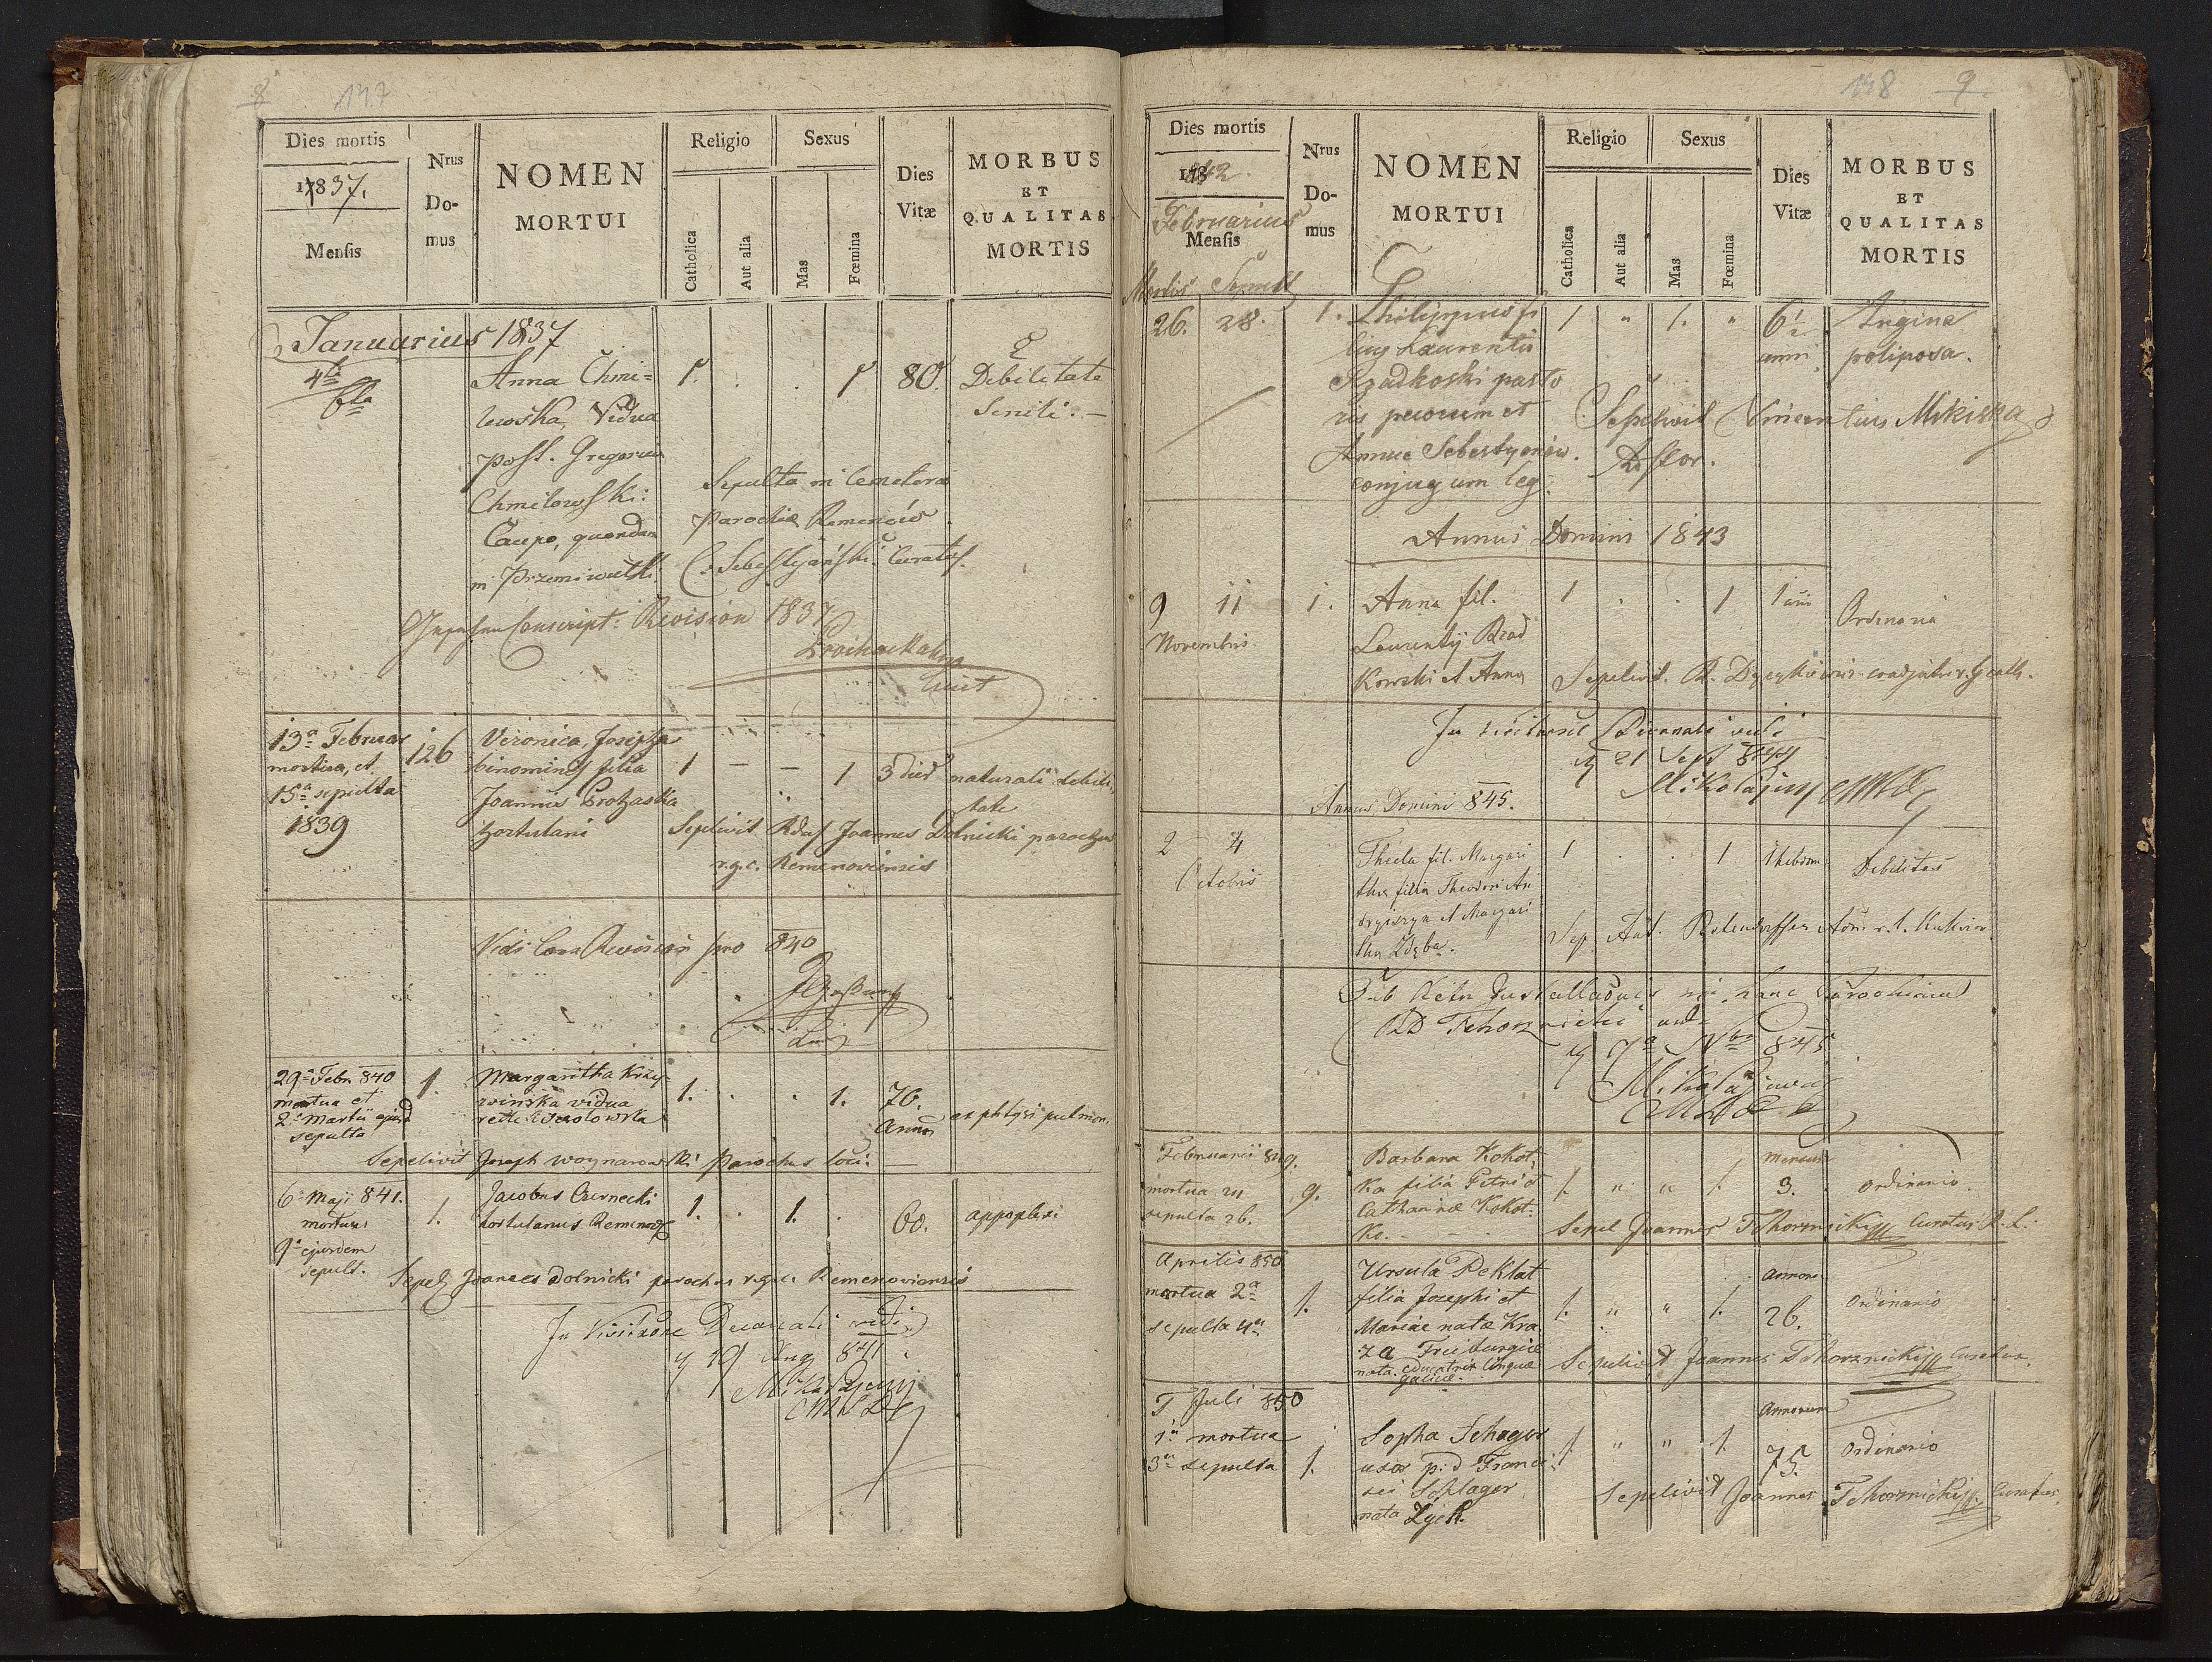 8 147
Dies mortis
1837.
Mensis
Nrus Domus
NOMEN
MORTUI
Religio
Catholica
Aut alia
Sexus
Mas
Fœmina
Dies
Vitæ
MORBUS
ET
QUALITAS
MORTIS
Januarius 1837
4ta
6ta
Anna Chmi=
lewska, Vidua
post. Gregorium
Chmilowski:
Caupo, quondam
in Przemiwulki.
1. . . 1 80. E
Debilitate
Senili. —
Sepulta in Cemeterio
Parochiæ Remenów
C. Sebestyański. Curatus.
Conscript: Revision 1837
13a Februar
mortua, et
15a sepulta
1839
126
Veronica, Josepha
binominis filia
Joannis Prohaska
hortulani
1 — — 1 3 dies naturali debili,
tate
Sepelivit Rdus Joannes Dolnicki parochus
r.g.c. Remenoviensis
Vidi Revision pro 840
29a Febr 840
mortua et
2a Martii ejusd
sepulta
1.
Margaritha Krzy-
winska vidua
1. . . 1. 76.
Annor
ex phtysi pulmon.
Sepelivit Joseph Woynarowski Parochus loci:
6a Maji 841.
mortuus
9a ejusdem
sepult.
1.
Jacobus Czernecki
hortulanus Remenov
1. . 1. . 60. appoplexi
Sepel Joannes Dolnicki parochus r.g.c. Remenoviensis
In Visitaõne Decanali vidi
19 Aug 841
148 9
Dies mortis
842.
Februarius
Mensis
Nrus Domus
NOMEN
MORTUI
Religio
Catholica
Aut alia
Sexus
Mas
Fœmina
Dies
Vitæ
MORBUS
ET
QUALITAS
MORTIS
26. 28. 1.
Philippus fi
lius Laurentii
Rzadkoski pasto
ris pecorum et
Annae Sebestyanów.
conjugum leg.
1 " 1. " 6½
anni
Angina
poliposa.
Sepelivit Vincentius
Pastor.
Annus Domini 1843
9 11
Novembris
1.
Anna fil.
Laurentij Rzad
kowski et Anna
1 . . 1 1 anni Ordinaria
Sepelivit. R.
In visitaone Decanali vidi
21 Sept 844
Annus Domini 845.
2 4
Octobris
Thecla fil. Margari
tha filia Theodori An
dryiszyn et Margari
tha Zięba.
1 . . 1 1 hebdom. Debilitas
Sep. Ant.
Sub Actu Installationis in hanc Parochiam
RD Tchorznicki vidi
17a Nbr 845
Februarii 849.
mortua 24
sepulta 26.
9.
Barbara Kokot,
ka filia Petri et
Catharinæ Kokot.
ko. - -
1. " " 1. Mensium
3. ordinario.
Sepel Joannes Tchorznicki Curatus R. L.
Aprilis 850
mortua 2a
sepulta 4a
1.
Ursula Peklat
filia Josephi et
Mariae natæ Kra
za Friburgiæ
nata. educatrix linguæ
galicæ.
1. " " 1. Annorum
26. Ordinario
Sepelivit Joannes Tchorznicki Curatus.
Juli 850
1a mortua
3a sepulta
1.
Sopha Schager
uxor p: d Franci
sci Schlager
nata Zych.
1. " " 1. Annorum
75. Ordinario
Sepelivit Joannes Tchorznicki Curatus.